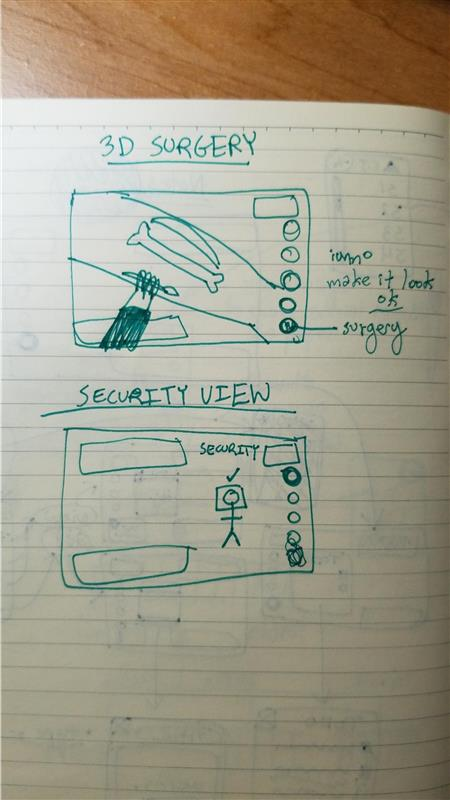 3D SURGERY
make it look
ok
surgery
SECURITY VIEW
SECURITY